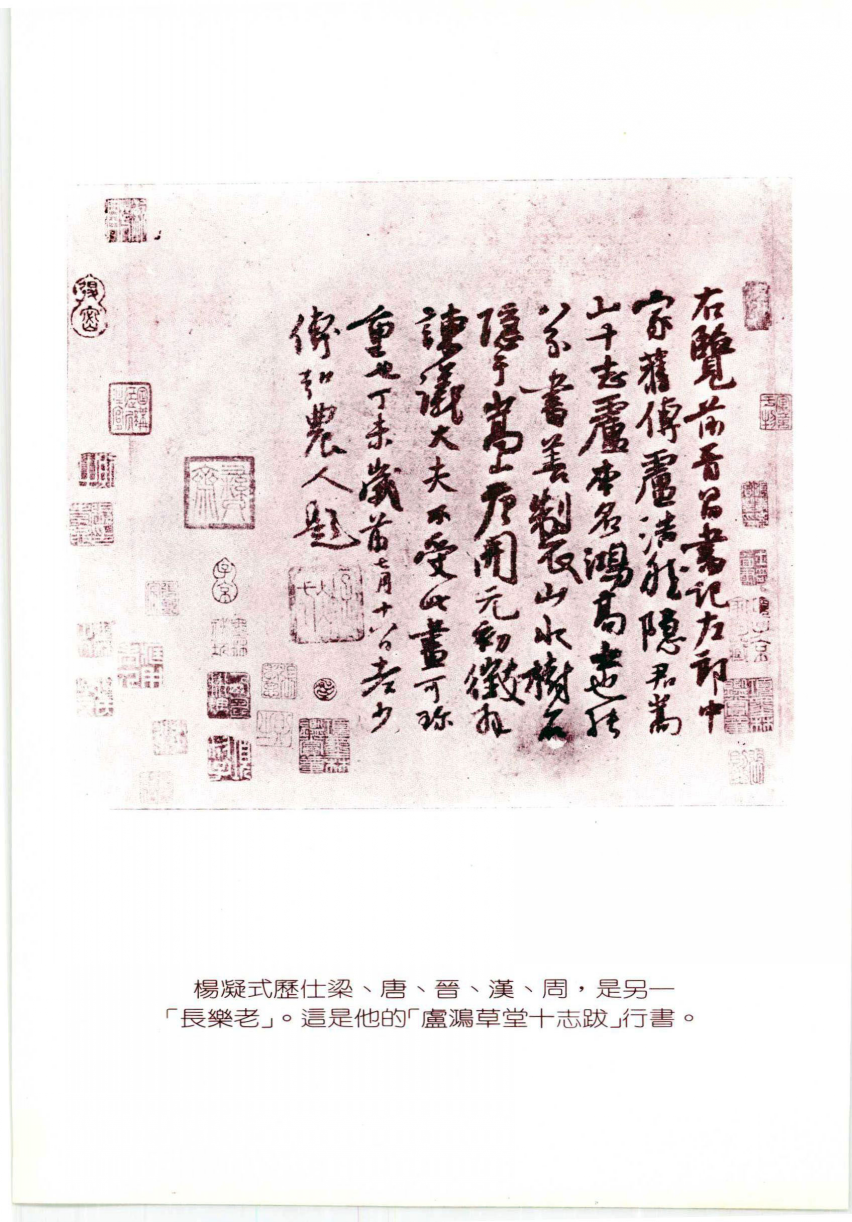 右覽前晉昌書記左郎中
家舊傳盧浩然隱君嵩
山十志盧本名鴻高士也能
八分書善製山水樹石
隱于嵩山唐開元初徵拜
諫議大夫不受此畫可珍
重也丁未歲前七月十八日老少
傅弘農人題
楊凝式歷仕梁、唐、晉、漢、周,是另一
「長樂老」。這是他的「盧鴻草堂十志跋」行書。